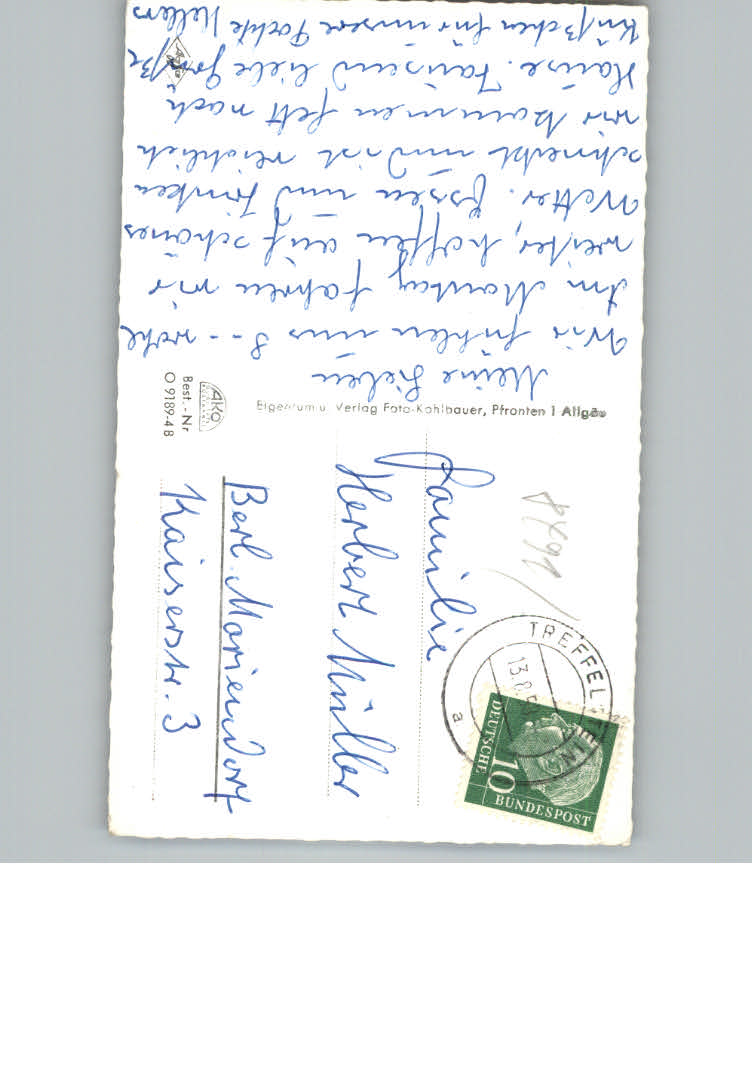 Meine Lieben
Wir fühlen uns s-- wohl
Am Montag fahren wir
weiter, hoffen auf schönes
Wetter. Essen und Trinken
schmeckt und ist reichlich
wir kommen fett nach
Hause. Tausend liebe Grüße
Küßchen für unsere
Eigentum u. Verlag Foto-Kohlbauer, Pfronten 1 Allgäu
AKO
Best.-Nr
O 9189-4 B
Familie
Herbert Müller
Berl. Mariendorf
Kaiserstr. 3
TREFFELSTEIN
13.8.5
a
DEUTSCHE
10
BUNDESPOST